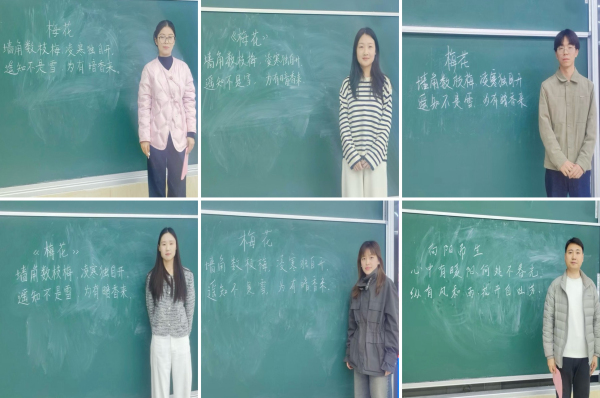 梅花
墙角数枝梅 凌寒独自开.
遥知不是雪 为有暗香来.
《梅花》
墙角数枝梅 凌寒独自开
遥知不是雪, 为有暗香来
梅花
墙角数枝梅, 凌寒独自开
遥知不是雪, 为有暗香来
《梅花》
墙角数枝梅 凌寒独自开.
遥知不是雪 为有暗香来.
梅花
墙角数枝梅 凌寒独自开.
遥知不是雪, 为有暗香来.
向阳而生
心中有暖阳何处不春光,
纵有风和雨花开自